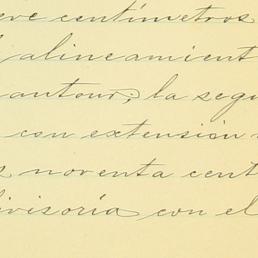 eve centímetros
alineamient
antour; la segu
con extensión
noventa cent
ivisoria con el